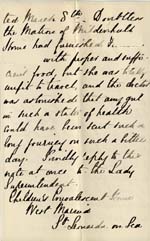 ted March 8th. Doubtless
the Matron of Mildenhall
Home had furnished
with proper and suffi-
cient food, but she was totally
unfit to travel, and the doctor
was astonished that any girl
in such a state of health
could have been sent such a
long journey on such a bitter
day. Kindly reply to this
note at once to the Lady
Superintendent.
Children's Convalescent Home
West Marina
St Leonards on Sea